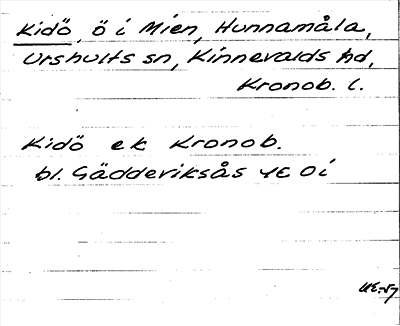 Kidö, ö i Mien, Hunnamåla,
Urshults sn, Kinnevalds hd,
Kronob. l.
Kidö ek Kronob.
bl. Gädderiksås 4E 0i